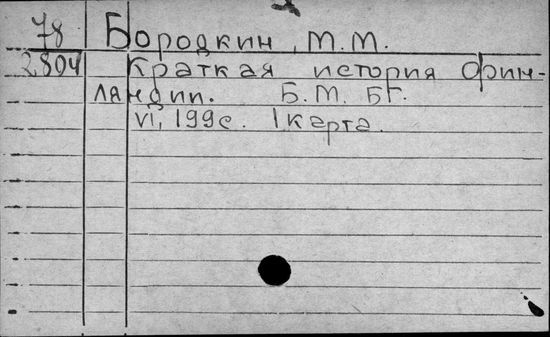 78 Бородкин, М.М.
2804 Краткая история Фин-
ляндии. Б.М. Б.Г.
VI, 199с. 1 карта.